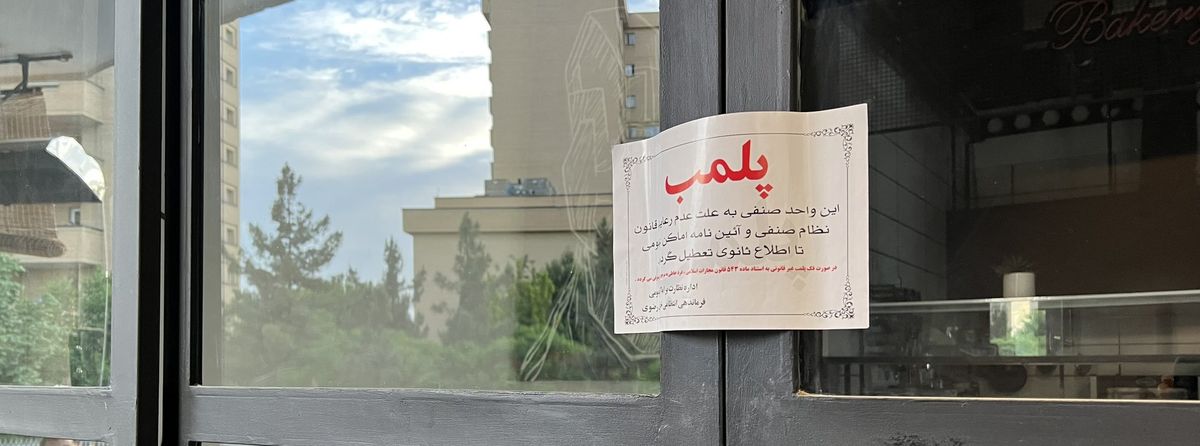 Bakery
پلمب
این واحد صنفی به علت عدم رعایت قانون
نظام صنفی و آئین نامه اماکن عمومی
تا اطلاع ثانوی تعطیل گردید
در صورت فک پلمب غیر قانونی به استناد ماده ۵۴۳ قانون مجازات اسلامی
اداره نظارت بر اماکن عمومی
فرماندهی انتظامی رضوی